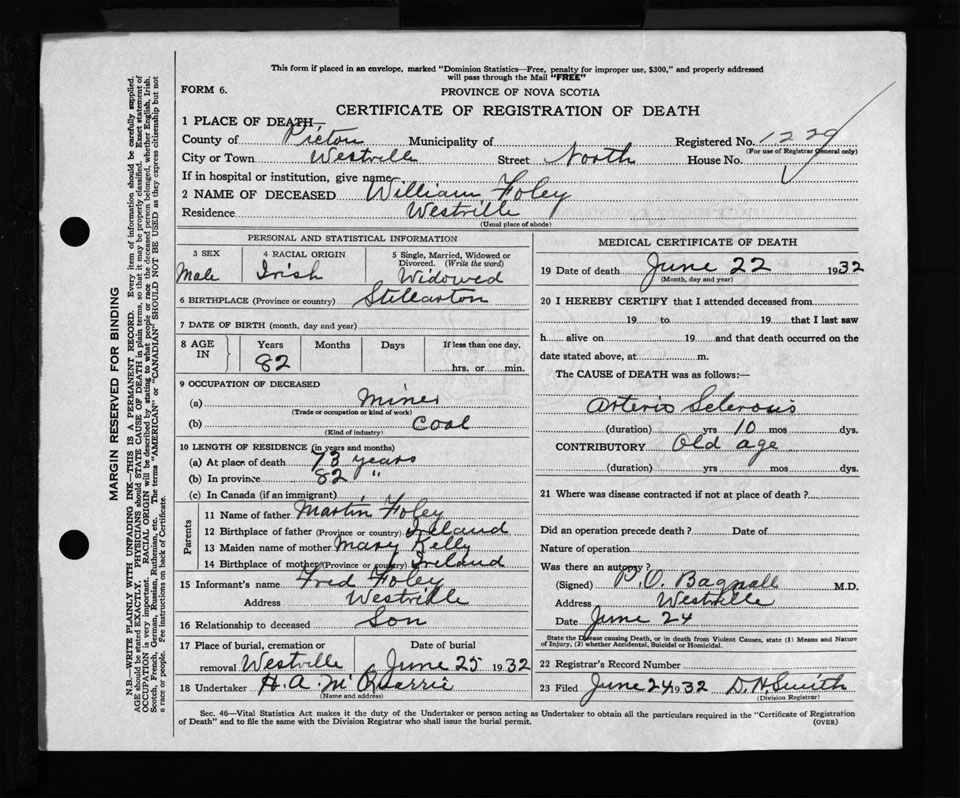 This form if placed in an envelope, marked "Dominion Statistics—Free, penalty for improper use, $300," and properly addressed
will pass through the Mail "FREE"
FORM 6.
PROVINCE OF NOVA SCOTIA
CERTIFICATE OF REGISTRATION OF DEATH
1 PLACE OF DEATH—
County of Pictou Municipality of Registered No. 1229
(For use of Registrar General only)
City or Town Westville Street North House No.
If in hospital or institution, give name
2 NAME OF DECEASED William Foley
Residence Westville
(Usual place of abode)
PERSONAL AND STATISTICAL INFORMATION
3 SEX 4 RACIAL ORIGIN 5 Single, Married, Widowed or Divorced. (Write the word)
Male Irish Widowed
6 BIRTHPLACE (Province or country) Stellarton
7 DATE OF BIRTH (month, day and year)
8 AGE IN Years Months Days If less than one day,
82 hrs. or min.
9 OCCUPATION OF DECEASED
(a) Miner
(Trade or occupation or kind of work)
(b) Coal
(Kind of industry)
10 LENGTH OF RESIDENCE (in years and months)
(a) At place of death 73 years
(b) In province 82 "
(c) In Canada (if an immigrant)
Parents
11 Name of father Martin Foley
12 Birthplace of father (Province or country) Ireland
13 Maiden name of mother Mary Kelly
14 Birthplace of mother (Province or country) Ireland
15 Informant's name Fred Foley
Address Westville
16 Relationship to deceased Son
17 Place of burial, cremation or Date of burial
removal Westville June 25 1932
18 Undertaker H. A. McQuarrie
(Name and address)
MEDICAL CERTIFICATE OF DEATH
19 Date of death June 22 1932
(Month, day and year)
20 I HEREBY CERTIFY that I attended deceased from
19 to 19 that I last saw
h alive on 19 and that death occurred on the
date stated above, at m.
The CAUSE of DEATH was as follows:—
Arterio Sclerosis
(duration) yrs 10 mos dys.
CONTRIBUTORY Old age
(duration) yrs mos dys.
21 Where was disease contracted if not at place of death?
Did an operation precede death? Date of
Nature of operation
Was there an autopsy?
(Signed) P. O. Bagnall M.D.
Address Westville
Date June 24
State the Disease causing Death, or in death from Violent Causes, state (1) Means and Nature
of Injury, (2) whether Accidental, Suicidal or Homicidal.
22 Registrar's Record Number
23 Filed June 24 1932 D. H. Smith
(Division Registrar)
Sec. 46—Vital Statistics Act makes it the duty of the Undertaker or person acting as Undertaker to obtain all the particulars required in the "Certificate of Registration
of Death" and to file the same with the Division Registrar who shall issue the burial permit. (OVER)
MARGIN RESERVED FOR BINDING
N.B.—WRITE PLAINLY WITH UNFADING INK—THIS IS A PERMANENT RECORD. Every item of information should be carefully supplied.
AGE should be stated EXACTLY. PHYSICIANS should STATE CAUSE OF DEATH in plain terms, so that it may be properly classified. Exact statement of
OCCUPATION is very important. RACIAL ORIGIN will be described by stating to what people or race the deceased person belonged, whether English, Irish,
Scotch, French, German, Russian, Ruthenian, etc. The terms "AMERICAN" or "CANADIAN" SHOULD NOT BE USED as they express citizenship but not
a race or people. See instructions on back of Certificate.